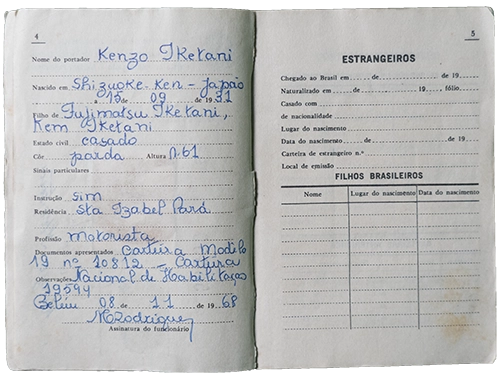 4
Nome do portador Kenzo Iketani
Nascido em Shizuoke-Ken - Japão
a 15 de 09 de 1931
Filho de Fujimatsu Iketani,
Kem Iketani
Estado civil casado
Côr parda Altura 1,61
Sinais particulares
Instrução sim
Residência Sta Izabel Pará
Profissão motorista
Documentos apresentados Carteira Modelo
19 nº 10812 - Carteira
Observações Nacional de Habilitação
19594
Belém 08 de 11 de 1968
MRodrigues
Assinatura do funcionário
5
ESTRANGEIROS
Chegado ao Brasil em de de 19
Naturalizado em de 19 , fólio
Casado com
de nacionalidade
Lugar do nascimento
Data do nascimento de de 19
Carteira de estrangeiro n.º
Local de emissão
FILHOS BRASILEIROS
Nome Lugar do nascimento Data do nascimento